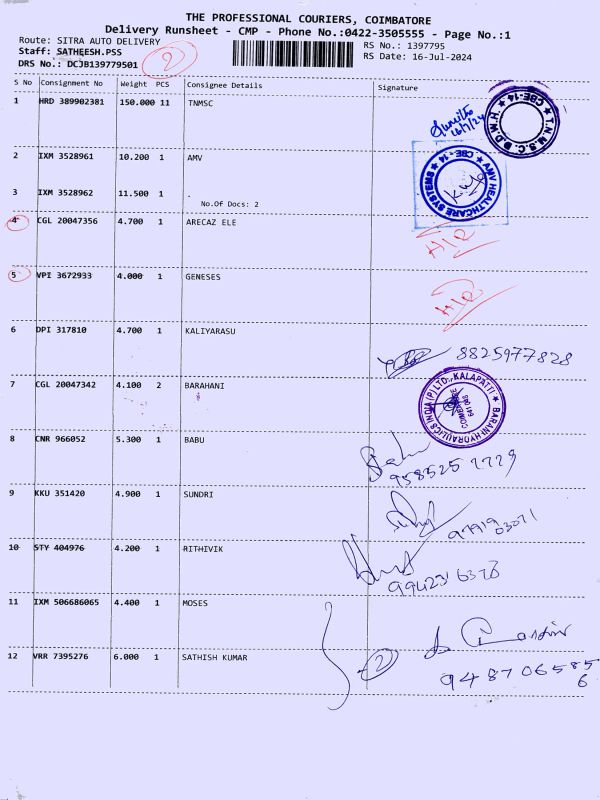 THE PROFESSIONAL COURIERS, COIMBATORE
Delivery Runsheet - CMP - Phone No.:0422-3505555 - Page No.:1
Route: SITRA AUTO DELIVERY
RS No.: 1397795
Staff: SATHEESH.PSS
2
RS Date: 16-Jul-2024
DRS No.: DCJB139779501
S No Consignment No Weight PCS Consignee Details Signature
1 HRD 389902381 150.000 11 TNMSC
16/7/24
T.N.M.S.C. B.D.W.H. CBE-14
2 IXM 3528961 10.200 1 AMV
AMV HEALTHCARE SYSTEMS CBE - 14
3 IXM 3528962 11.500 1 .
No.Of Docs: 2
4 CGL 20047356 4.700 1 ARECAZ ELE
H/R
5 VPI 3672933 4.000 1 GENESES
H/R
6 DPI 317810 4.700 1 KALIYARASU
8825977828
7 CGL 20047342 4.100 2 BARAHANI
BARANI HYDRAULICS INDIA (P) LTD., KALAPATTI COIMBATORE 641 048
8 CNR 966052 5.300 1 BABU
9585252729
9 KKU 351420 4.900 1 SUNDRI
9791903071
10 STY 404976 4.200 1 RITHIVIK
9942316378
11 IXM 506686065 4.400 1 MOSES
12 VRR 7395276 6.000 1 SATHISH KUMAR
2
9487065856